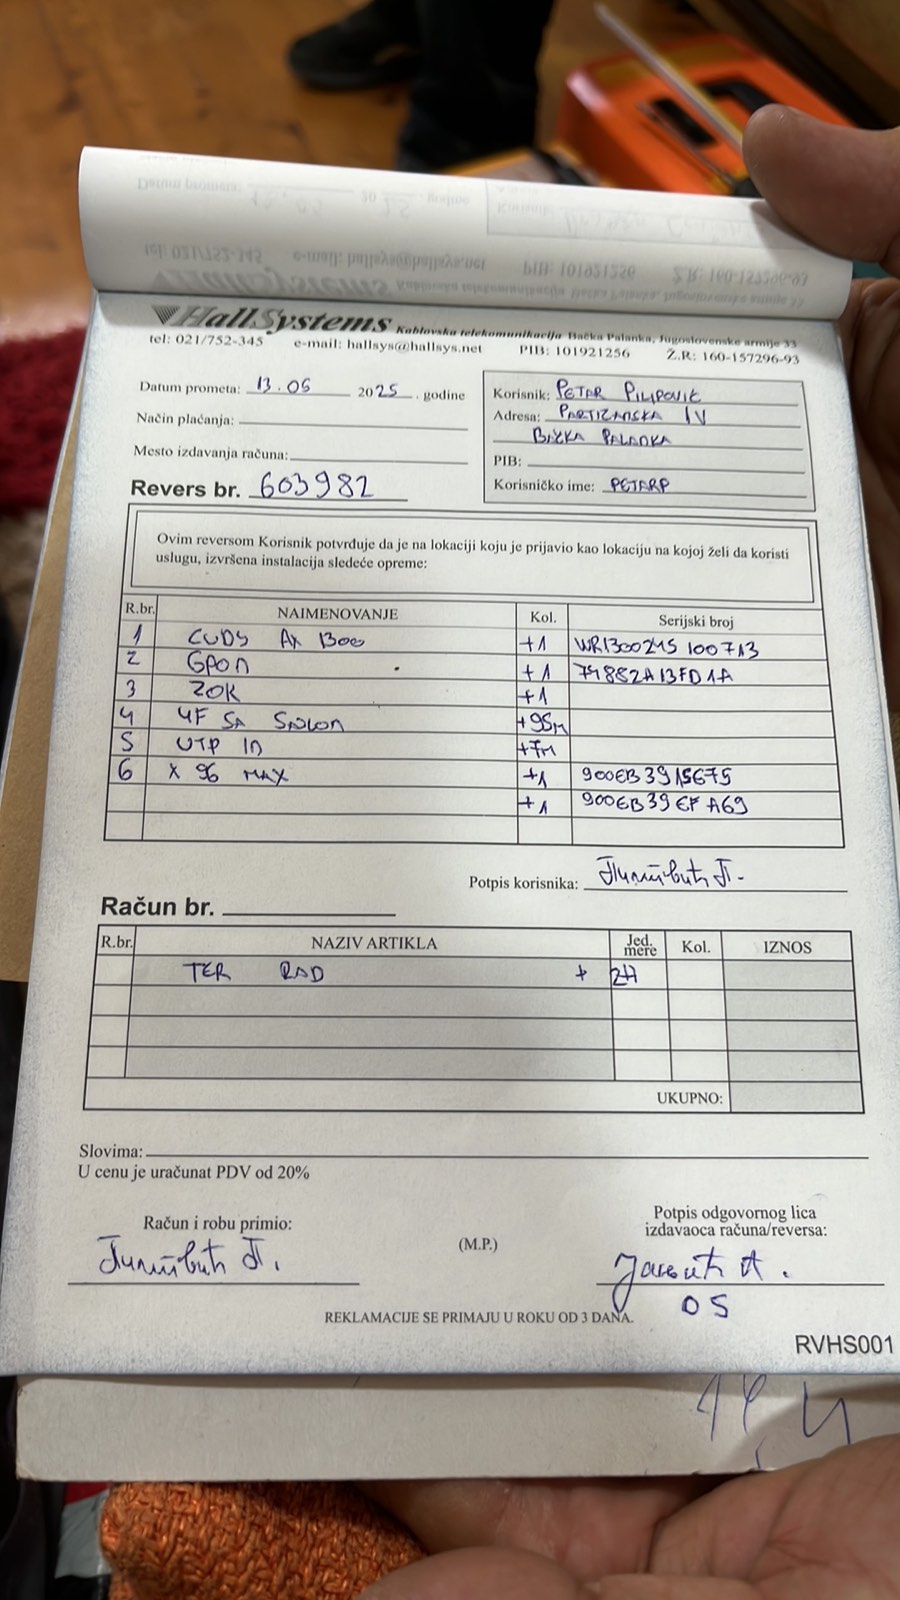 HallSystems Kablovska telekomunikacija Bačka Palanka, Jugoslovenske armije 33
tel: 021/752-345 e-mail: hallsys@hallsys.net PIB: 101921256 Ž.R: 160-157296-93
Datum prometa: 13.05 2025. godine
Način plaćanja:
Mesto izdavanja računa:
Revers br. 603982
Korisnik: PETAR PILIPOVIĆ
Adresa: PARTIZANSKA IV
BAČKA PALANKA
PIB:
Korisničko ime: PETARP
Ovim reversom Korisnik potvrđuje da je na lokaciji koju je prijavio kao lokaciju na kojoj želi da koristi
uslugu, izvršena instalacija sledeće opreme:
R.br. NAIMENOVANJE Kol. Serijski broj
1 CUDY AX 1300 +1 WR1300245 100713
2 GPON +1 79882A13FD1A
3 ZOK +1
4 4F SA SAJLOM +95M
5 UTP IN +7M
6 X 96 MAX +1 900EB3915675
+1 900EB39EFA69
Potpis korisnika: Пилиповић П.
Račun br.
R.br. NAZIV ARTIKLA Jed. mere Kol. IZNOS
TER RAD + 2H
UKUPNO:
Slovima:
U cenu je uračunat PDV od 20%
Račun i robu primio:
Пилиповић П.
(M.P.)
Potpis odgovornog lica
izdavaoca računa/reversa:
05
REKLAMACIJE SE PRIMAJU U ROKU OD 3 DANA.
RVHS001